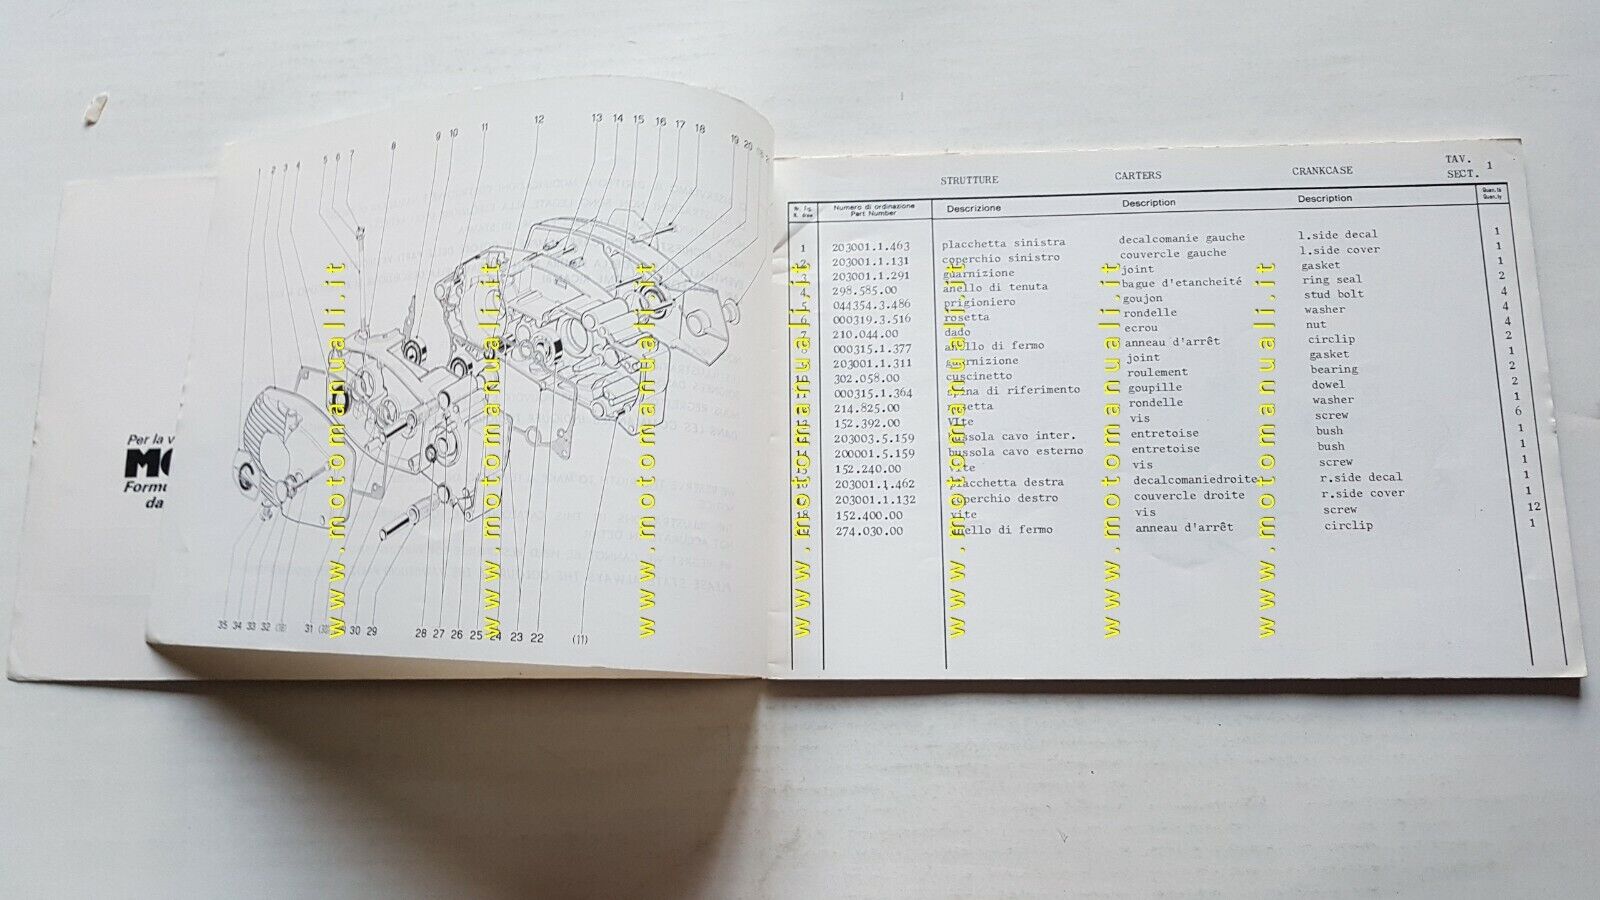 1 2 3 4 5 6 7 8 9 10 11 12 13 14 15 16 17 18 19 20
35 34 33 32 31 30 29 28 27 26 25 24 23 22 (11)
Per la v
MO
Formu
da
www.motomanuali.it
www.motomanuali.it
www.motomanuali.it
STRUTTURE CARTERS CRANKCASE TAV. 1
SECT.
Numero di ordinazione
Part Number
Descrizione Description Description
1 203001.1.463 placchetta sinistra decalcomanie gauche l.side decal 1
2 203001.1.131 coperchio sinistro couvercle gauche l.side cover 1
3 203001.1.291 guarnizione joint gasket 1
4 298.585.00 anello di tenuta bague d'etancheité ring seal 2
5 044354.3.486 prigioniero goujon stud bolt 4
6 000319.3.516 rosetta rondelle washer 4
7 210.044.00 dado ecrou nut 4
8 000315.1.377 anello di fermo anneau d'arrêt circlip 2
9 203001.1.311 guarnizione joint gasket 1
10 302.058.00 cuscinetto roulement bearing 2
11 000315.1.364 spina di riferimento goupille dowel 2
214.825.00 rosetta rondelle washer 1
152.392.00 vite vis screw 6
203003.5.159 bussola cavo inter. entretoise bush 1
14 200001.5.159 bussola cavo esterno entretoise bush 1
15 152.240.00 vite vis screw 1
16 203001.1.462 placchetta destra decalcomaniedroite r.side decal 1
17 203001.1.132 coperchio destro couvercle droite r.side cover 1
18 152.400.00 vite vis screw 12
274.030.00 anello di fermo anneau d'arrêt circlip 1
www.motomanuali.it
www.motomanuali.it
www.motomanuali.it
www.motomanuali.it